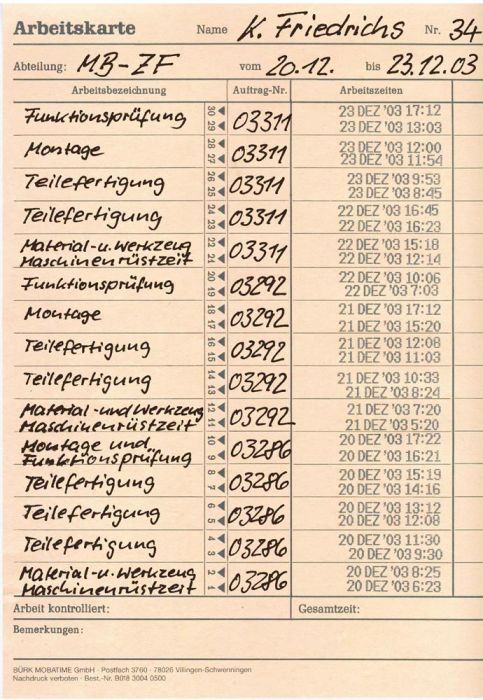 Arbeitskarte Name K. Friedrichs Nr. 34
Abteilung: MB-ZF vom 20.12. bis 23.12.03
Arbeitsbezeichnung Auftrag-Nr. Arbeitszeiten
Funktionsprüfung 30 29 03311 23 DEZ '03 17:12
23 DEZ '03 13:03
Montage 28 27 03311 23 DEZ '03 12:00
23 DEZ '03 11:54
Teilefertigung 26 25 03311 23 DEZ '03 9:53
23 DEZ '03 8:45
Teilefertigung 24 23 03311 22 DEZ '03 16:45
22 DEZ '03 16:23
Material-u. Werkzeug 22 21 03311 22 DEZ '03 15:18
Maschinenrüstzeit 22 DEZ '03 12:14
Funktionsprüfung 20 19 03292 22 DEZ '03 10:06
22 DEZ '03 7:03
Montage 18 17 03292 21 DEZ '03 17:12
21 DEZ '03 15:20
Teilefertigung 16 15 03292 21 DEZ '03 12:08
21 DEZ '03 11:03
Teilefertigung 14 13 03292 21 DEZ '03 10:33
21 DEZ '03 8:24
Material-und Werkzeug 12 11 03292 21 DEZ '03 7:20
Maschinenrüstzeit 21 DEZ '03 5:20
Montage und 10 9 03286 20 DEZ '03 17:22
Funktionsprüfung 20 DEZ '03 16:21
Teilefertigung 8 7 03286 20 DEZ '03 15:19
20 DEZ '03 14:16
Teilefertigung 6 5 03286 20 DEZ '03 13:12
20 DEZ '03 12:08
Teilefertigung 4 3 03286 20 DEZ '03 11:30
20 DEZ '03 9:30
Material-u. Werkzeug 2 1 03286 20 DEZ '03 8:25
Maschinenrüstzeit 20 DEZ '03 6:23
Arbeit kontrolliert: Gesamtzeit:
Bemerkungen:
BÜRK MOBATIME GmbH · Postfach 3760 · 78026 Villingen-Schwenningen
Nachdruck verboten · Best.-Nr. B018 3004 0500